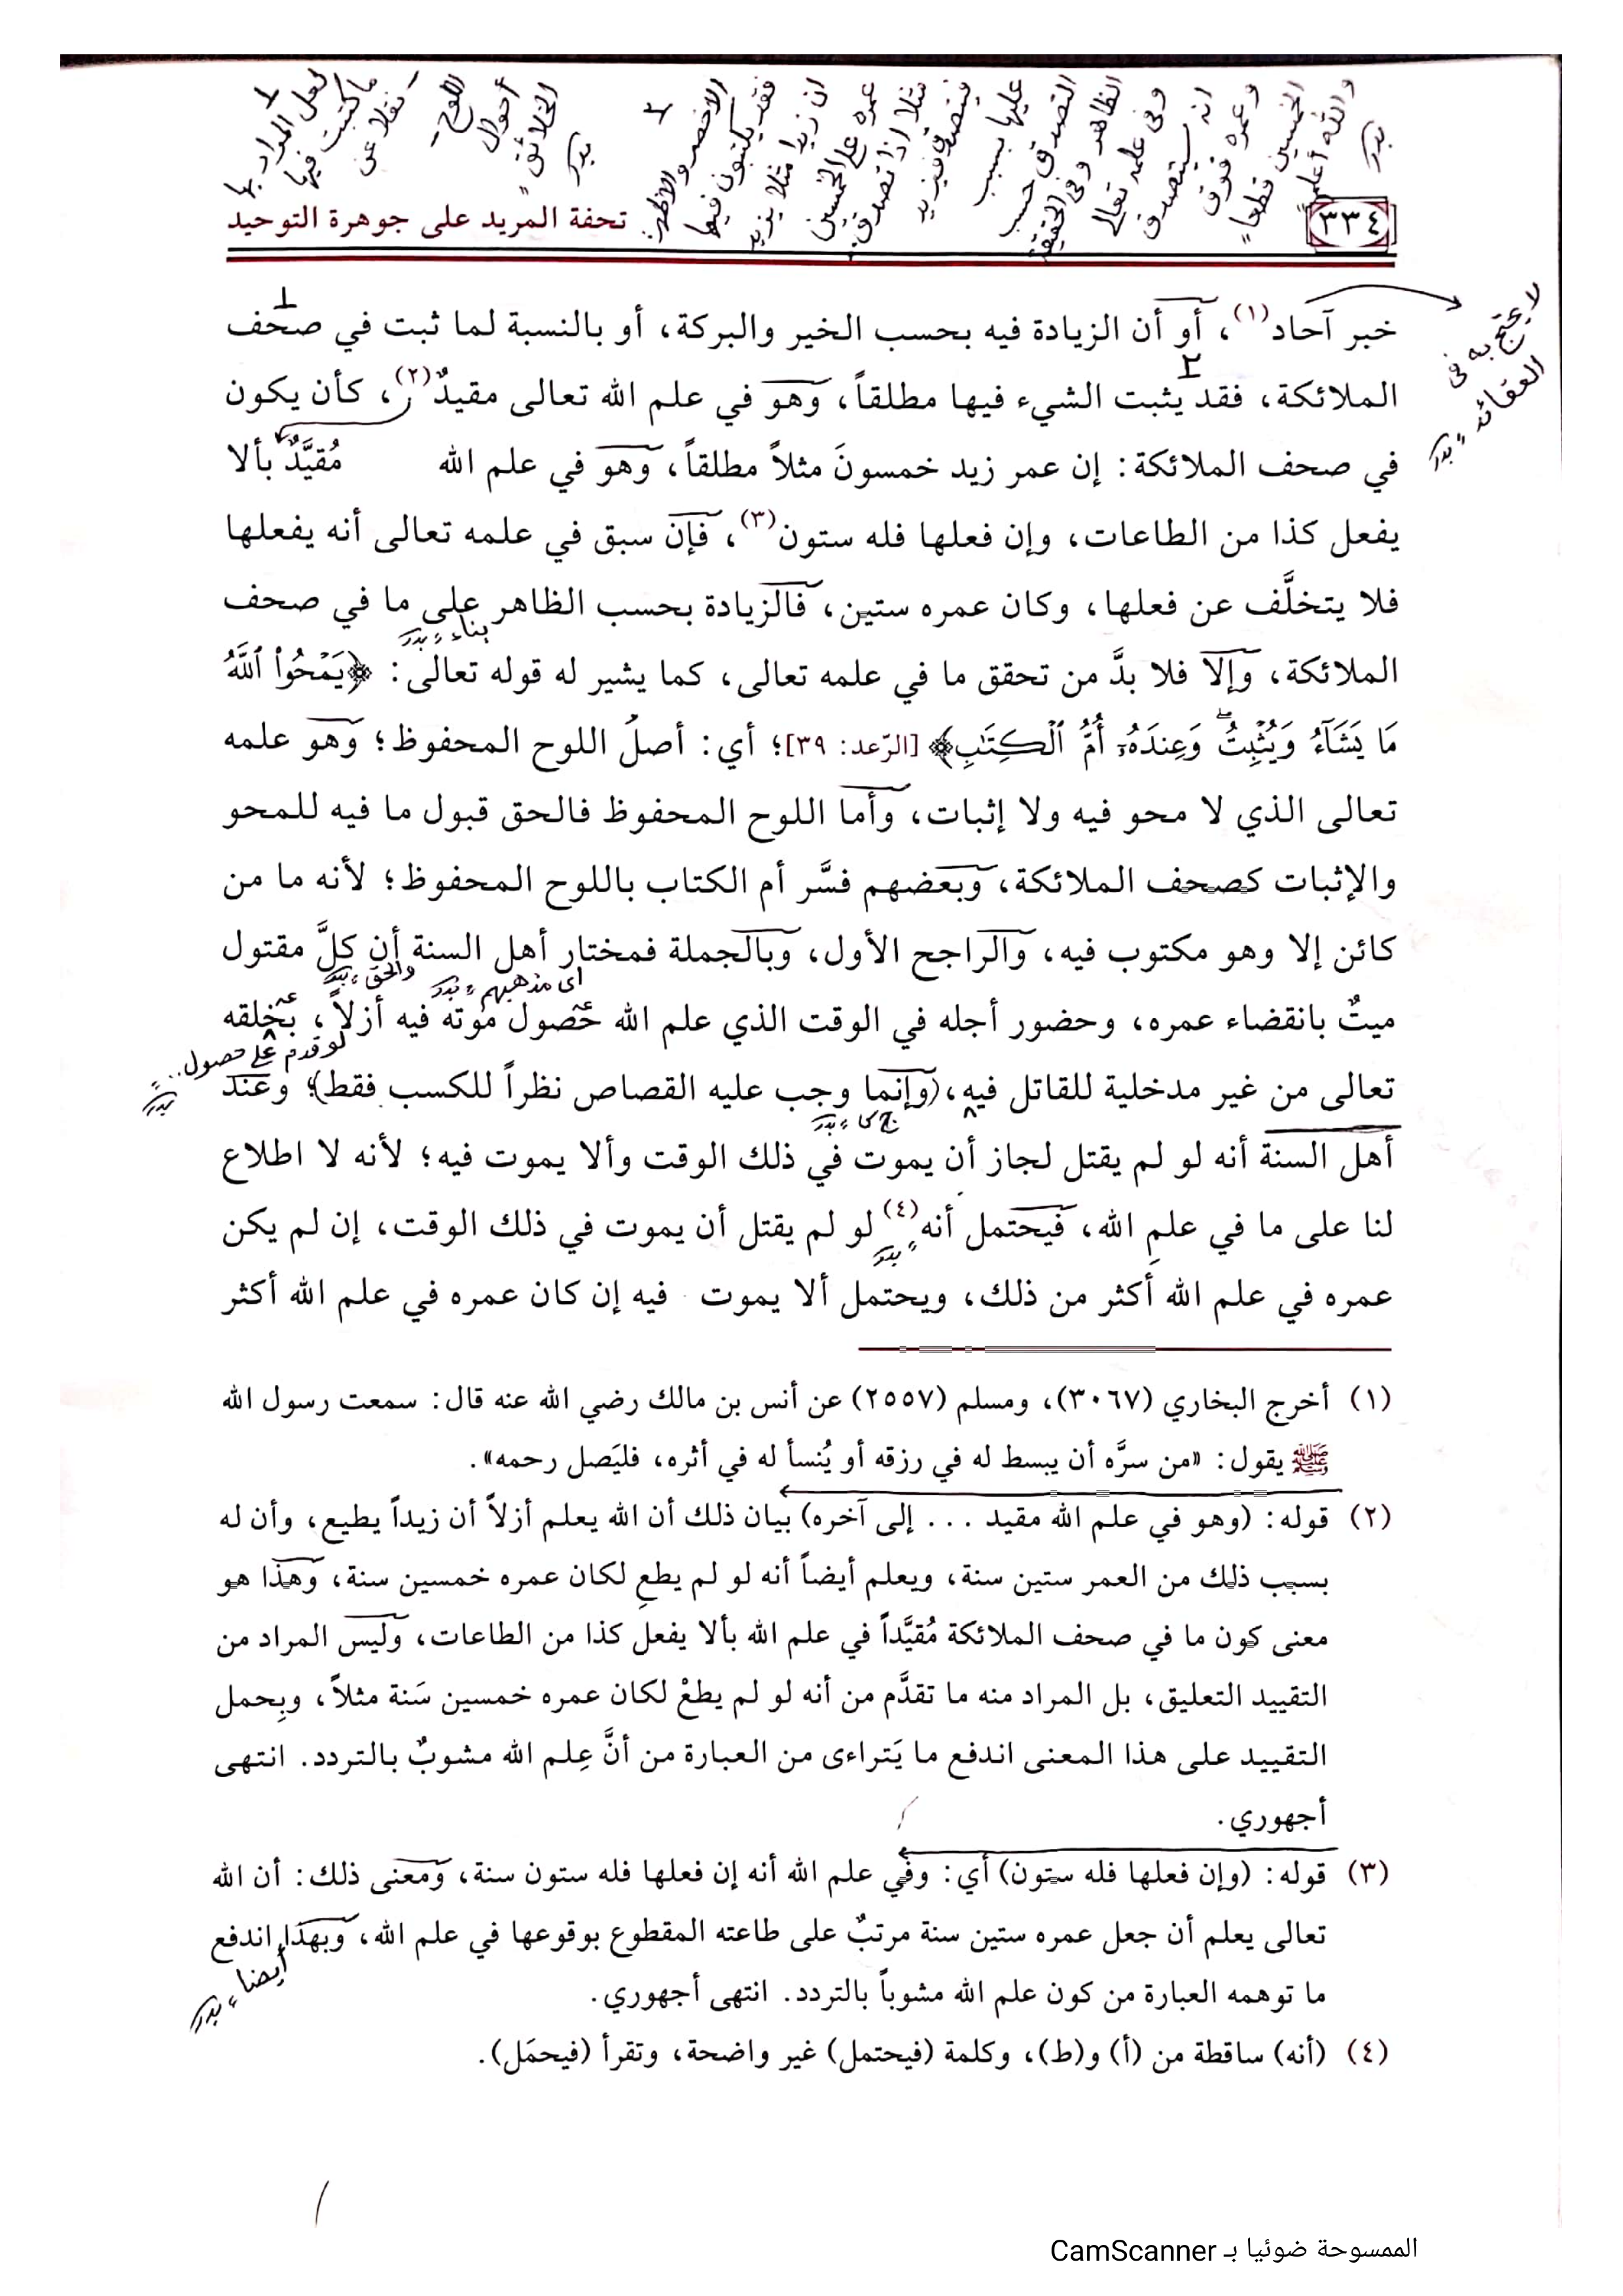 ٣٣٤
تحفة المريد على جوهرة التوحيد
لعل المراد بها
ما كتبت فيها
نقلا عن
اللوح
أحوال
الخلائق
بدر
فقد يكتبون فيها
ان زيدا مثلا يزيد
عمره على الخمسين
مثلا اذا تصدق
فيتصدق فيزيد
عليها بسبب
التصدق حسب
الظاهر وفى الحقيقة
وفى علمه تعالى
انه سيتصدق
وعمره فوق
الخمسين قطعا
والله أعلم
بدر
لا يحتج به فى
العقائد بدر
خبر آحاد(١)، أو أن الزيادة فيه بحسب الخير والبركة، أو بالنسبة لما ثبت في صحف
الملائكة، فقد يثبت الشيء فيها مطلقاً، وهو في علم الله تعالى مقيدٌ(٢)، كأن يكون
في صحف الملائكة: إن عمر زيد خمسونَ مثلاً مطلقاً، وهو في علم الله مُقيَّدٌ بألا
يفعل كذا من الطاعات، وإن فعلها فله ستون(٣)، فإن سبق في علمه تعالى أنه يفعلها
فلا يتخلَّف عن فعلها، وكان عمره ستين، فالزيادة بحسب الظاهر على ما في صحف
بناء بدر
الملائكة، وإلا فلا بدَّ من تحقق ما في علمه تعالى، كما يشير له قوله تعالى: ﴿يَمْحُوا۟ ٱللَّهُ
مَا يَشَآءُ وَيُثْبِتُ ۖ وَعِندَهُۥٓ أُمُّ ٱلْكِتَٰبِ﴾ [الرّعد: ٣٩]؛ أي: أصلُ اللوح المحفوظ؛ وهو علمه
تعالى الذي لا محو فيه ولا إثبات، وأما اللوح المحفوظ فالحق قبول ما فيه للمحو
والإثبات كصحف الملائكة، وبعضهم فسَّر أم الكتاب باللوح المحفوظ؛ لأنه ما من
كائن إلا وهو مكتوب فيه، والراجح الأول، وبالجملة فمختار أهل السنة أن كلَّ مقتول
اى مذهبهم بدر والحق بدر
ميتٌ بانقضاء عمره، وحضور أجله في الوقت الذي علم الله حصول موته فيه أزلاً، بخلقه
لو قدم على حصول.. بدر
تعالى من غير مدخلية للقاتل فيه، (وإنما وجب عليه القصاص نظراً للكسب فقط)؛ وعند
أهل السنة أنه لو لم يقتل لجاز أن يموت في ذلك الوقت وألا يموت فيه؛ لأنه لا اطلاع
لنا على ما في علمِ الله، فيحتمل أنه(٤) لو لم يقتل أن يموت في ذلك الوقت، إن لم يكن
بدر
عمره في علم الله أكثر من ذلك، ويحتمل ألا يموت فيه إن كان عمره في علم الله أكثر
(١) أخرج البخاري (٣٠٦٧)، ومسلم (٢٥٥٧) عن أنس بن مالك رضي الله عنه قال: سمعت رسول الله
ﷺ يقول: «من سرَّه أن يبسط له في رزقه أو يُنسأ له في أثره، فليَصل رحمه».
(٢) قوله: (وهو في علم الله مقيد ... إلى آخره) بيان ذلك أن الله يعلم أزلاً أن زيداً يطيع، وأن له
بسبب ذلك من العمر ستين سنة، ويعلم أيضاً أنه لو لم يطعِ لكان عمره خمسين سنة، وهذا هو
معنى كون ما في صحف الملائكة مُقيَّداً في علم الله بألا يفعل كذا من الطاعات، وليس المراد من
التقييد التعليق، بل المراد منه ما تقدَّم من أنه لو لم يطعْ لكان عمره خمسين سَنة مثلاً، وبِحمل
التقييد على هذا المعنى اندفع ما يَتراءى من العبارة من أنَّ عِلم الله مشوبٌ بالتردد. انتهى
أجهوري.
(٣) قوله: (وإن فعلها فله ستون) أي: وفي علم الله أنه إن فعلها فله ستون سنة، ومعنى ذلك: أن الله
تعالى يعلم أن جعل عمره ستين سنة مرتبٌ على طاعته المقطوع بوقوعها في علم الله، وبهذا اندفع
أيضا بدر
ما توهمه العبارة من كون علم الله مشوباً بالتردد. انتهى أجهوري.
(٤) (أنه) ساقطة من (أ) و(ط)، وكلمة (فيحتمل) غير واضحة، وتقرأ (فيحمَل).
الممسوحة ضوئيا بـ CamScanner